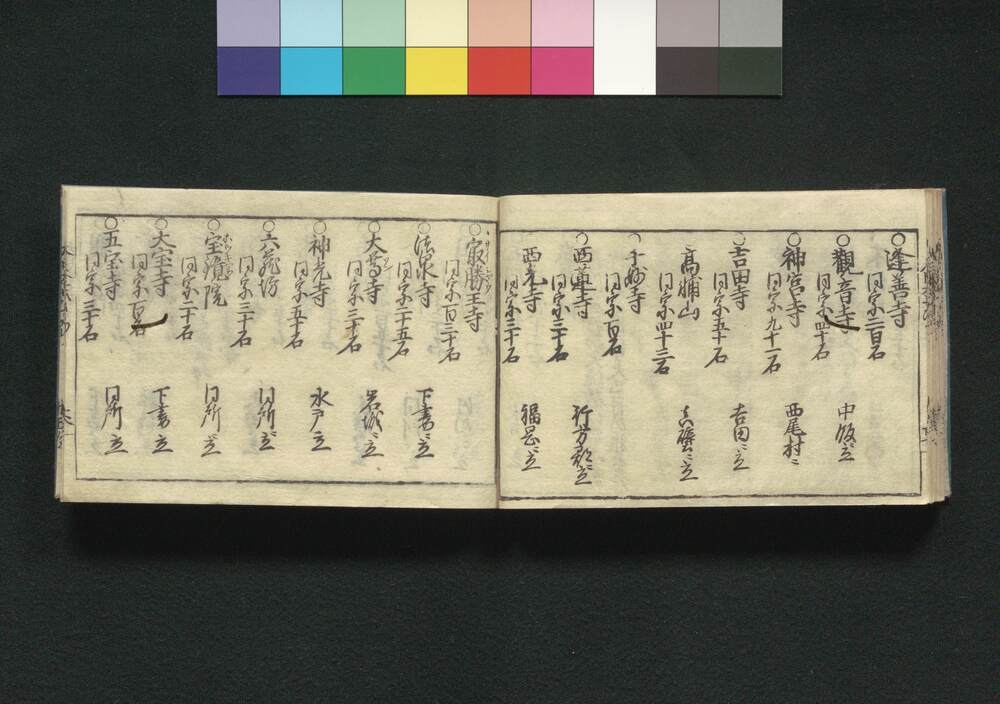 ○逢善寺
同宗二百石
○觀音寺
同宗四十石
中飯ニ立
○神宮寺
同宗九十一石
西尾村ニ
○吉田寺
同宗五十石
吉田ニ立
高婦山
同宗四十三石
真壁ニ立
千妙寺
同宗百石
○西蓮寺
同宗三十石
行方郡ニ立
西光寺
同宗三十石
福岡ニ立
○最勝王寺
同宗百三十石
法泉寺
同宗二十五石
下妻ニ立
○大寺
同宗三十石
岩城ニ立
○神光寺
同宗五十石
水戸ニ立
○六蔵坊
同宗三十石
同所ニ立
○宝憧院
同宗二十石
同所ニ立
○大宝寺
同宗百石
下妻ニ立
○五宝寺
同宗三十石
同所ニ立